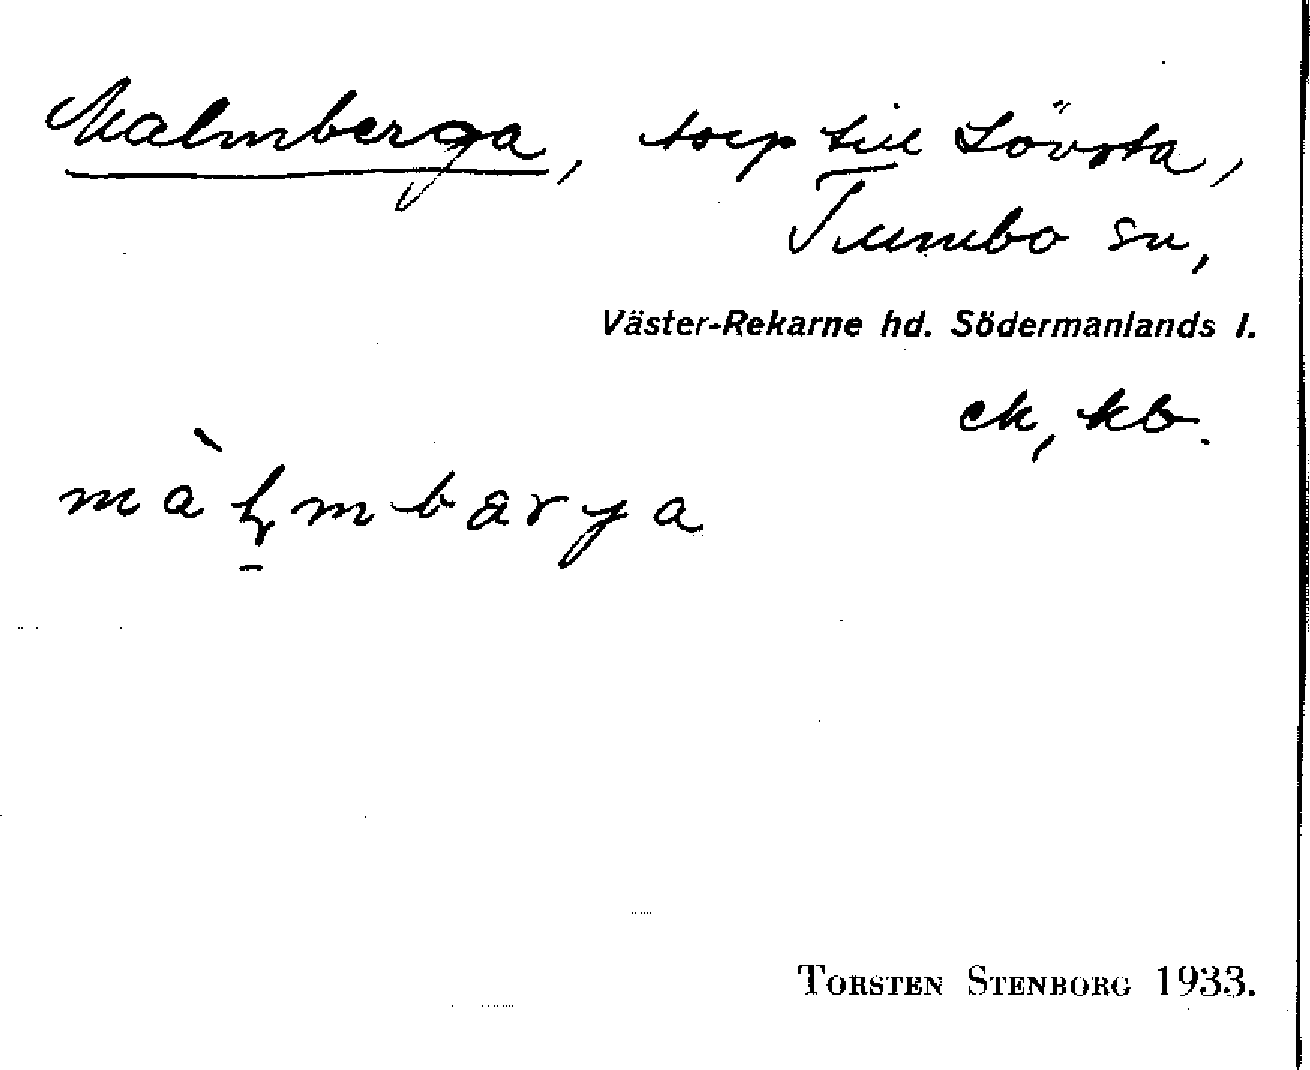 Malmberga, torp till Lövsta,
Tumbo sn,
Väster-Rekarne hd. Södermanlands l.
ek, kb.
màḷmbarya
TORSTEN STENBORG 1933.